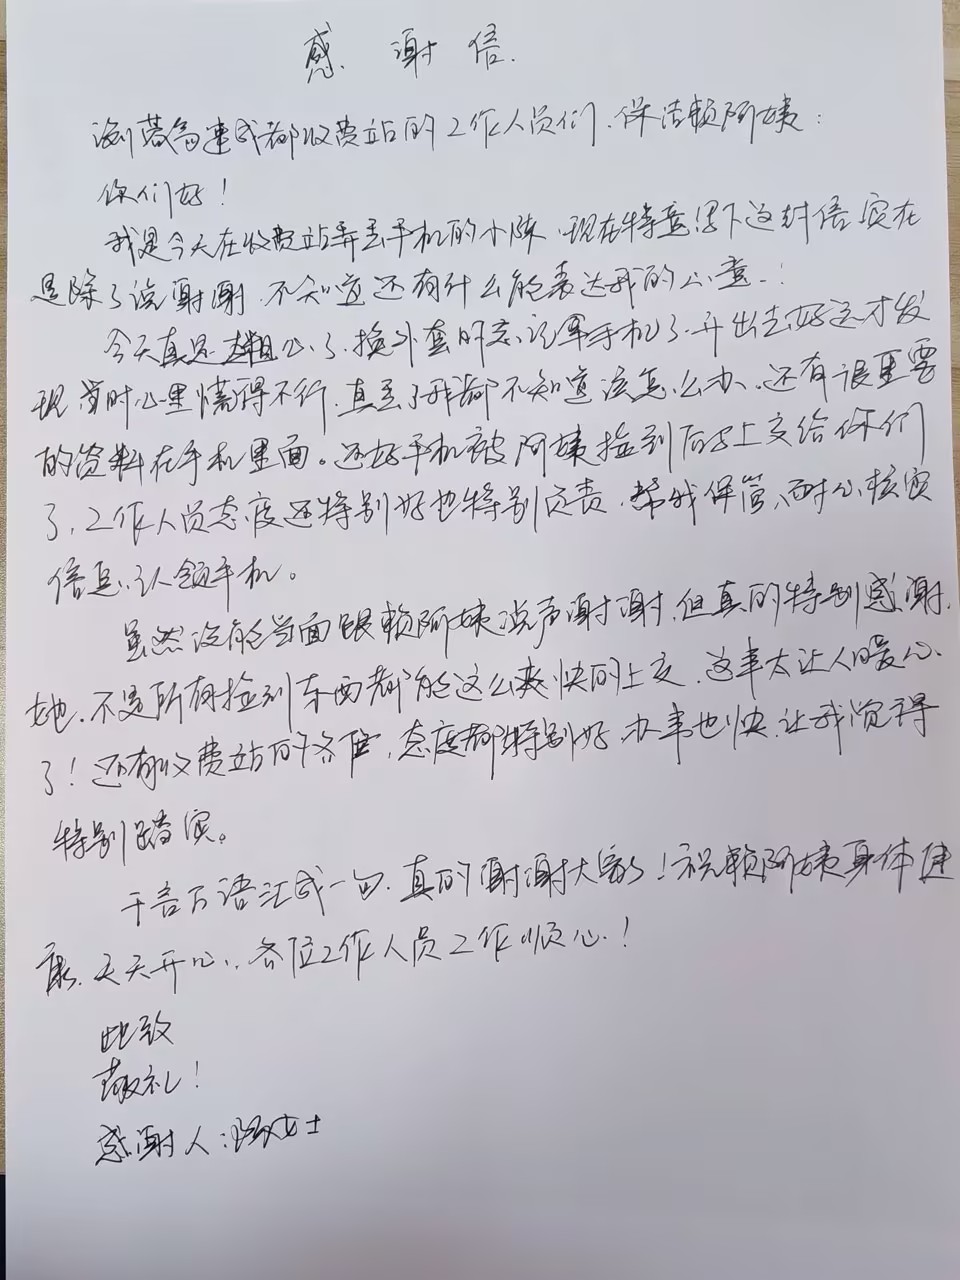 感谢信.
蓉高速成都收费站的工作人员们、保洁赖阿姨：
你们好！
我是今天在收费站弄丢手机的小陈，现在特意写下这封信实在
是除了说谢谢，不知道还有什么能表达我的心意..！
今天真是太粗心了，换外套时忘记拿手机了，开出去好远才发
现当时心里慌得不行，真丢了我都不知道该怎么办、还有很重要
的资料在手机里面。还好手机被阿姨捡到后上交给你们
了，工作人员态度还特别好也特别负责，帮我保管、耐心核实
信息、认领手机。
虽然没能当面跟赖阿姨说声谢谢，但真的特别感谢
她，不是所有捡到东西都能这么爽快的上交，这事太让人暖心
了！还有收费站的各位，态度都特别好，办事也快，让我觉得
特别踏实。
千言万语汇成一句，真的谢谢大家了！祝赖阿姨身体健
康、天天开心、各位工作人员工作顺心！
此致
敬礼！
感谢人：女士